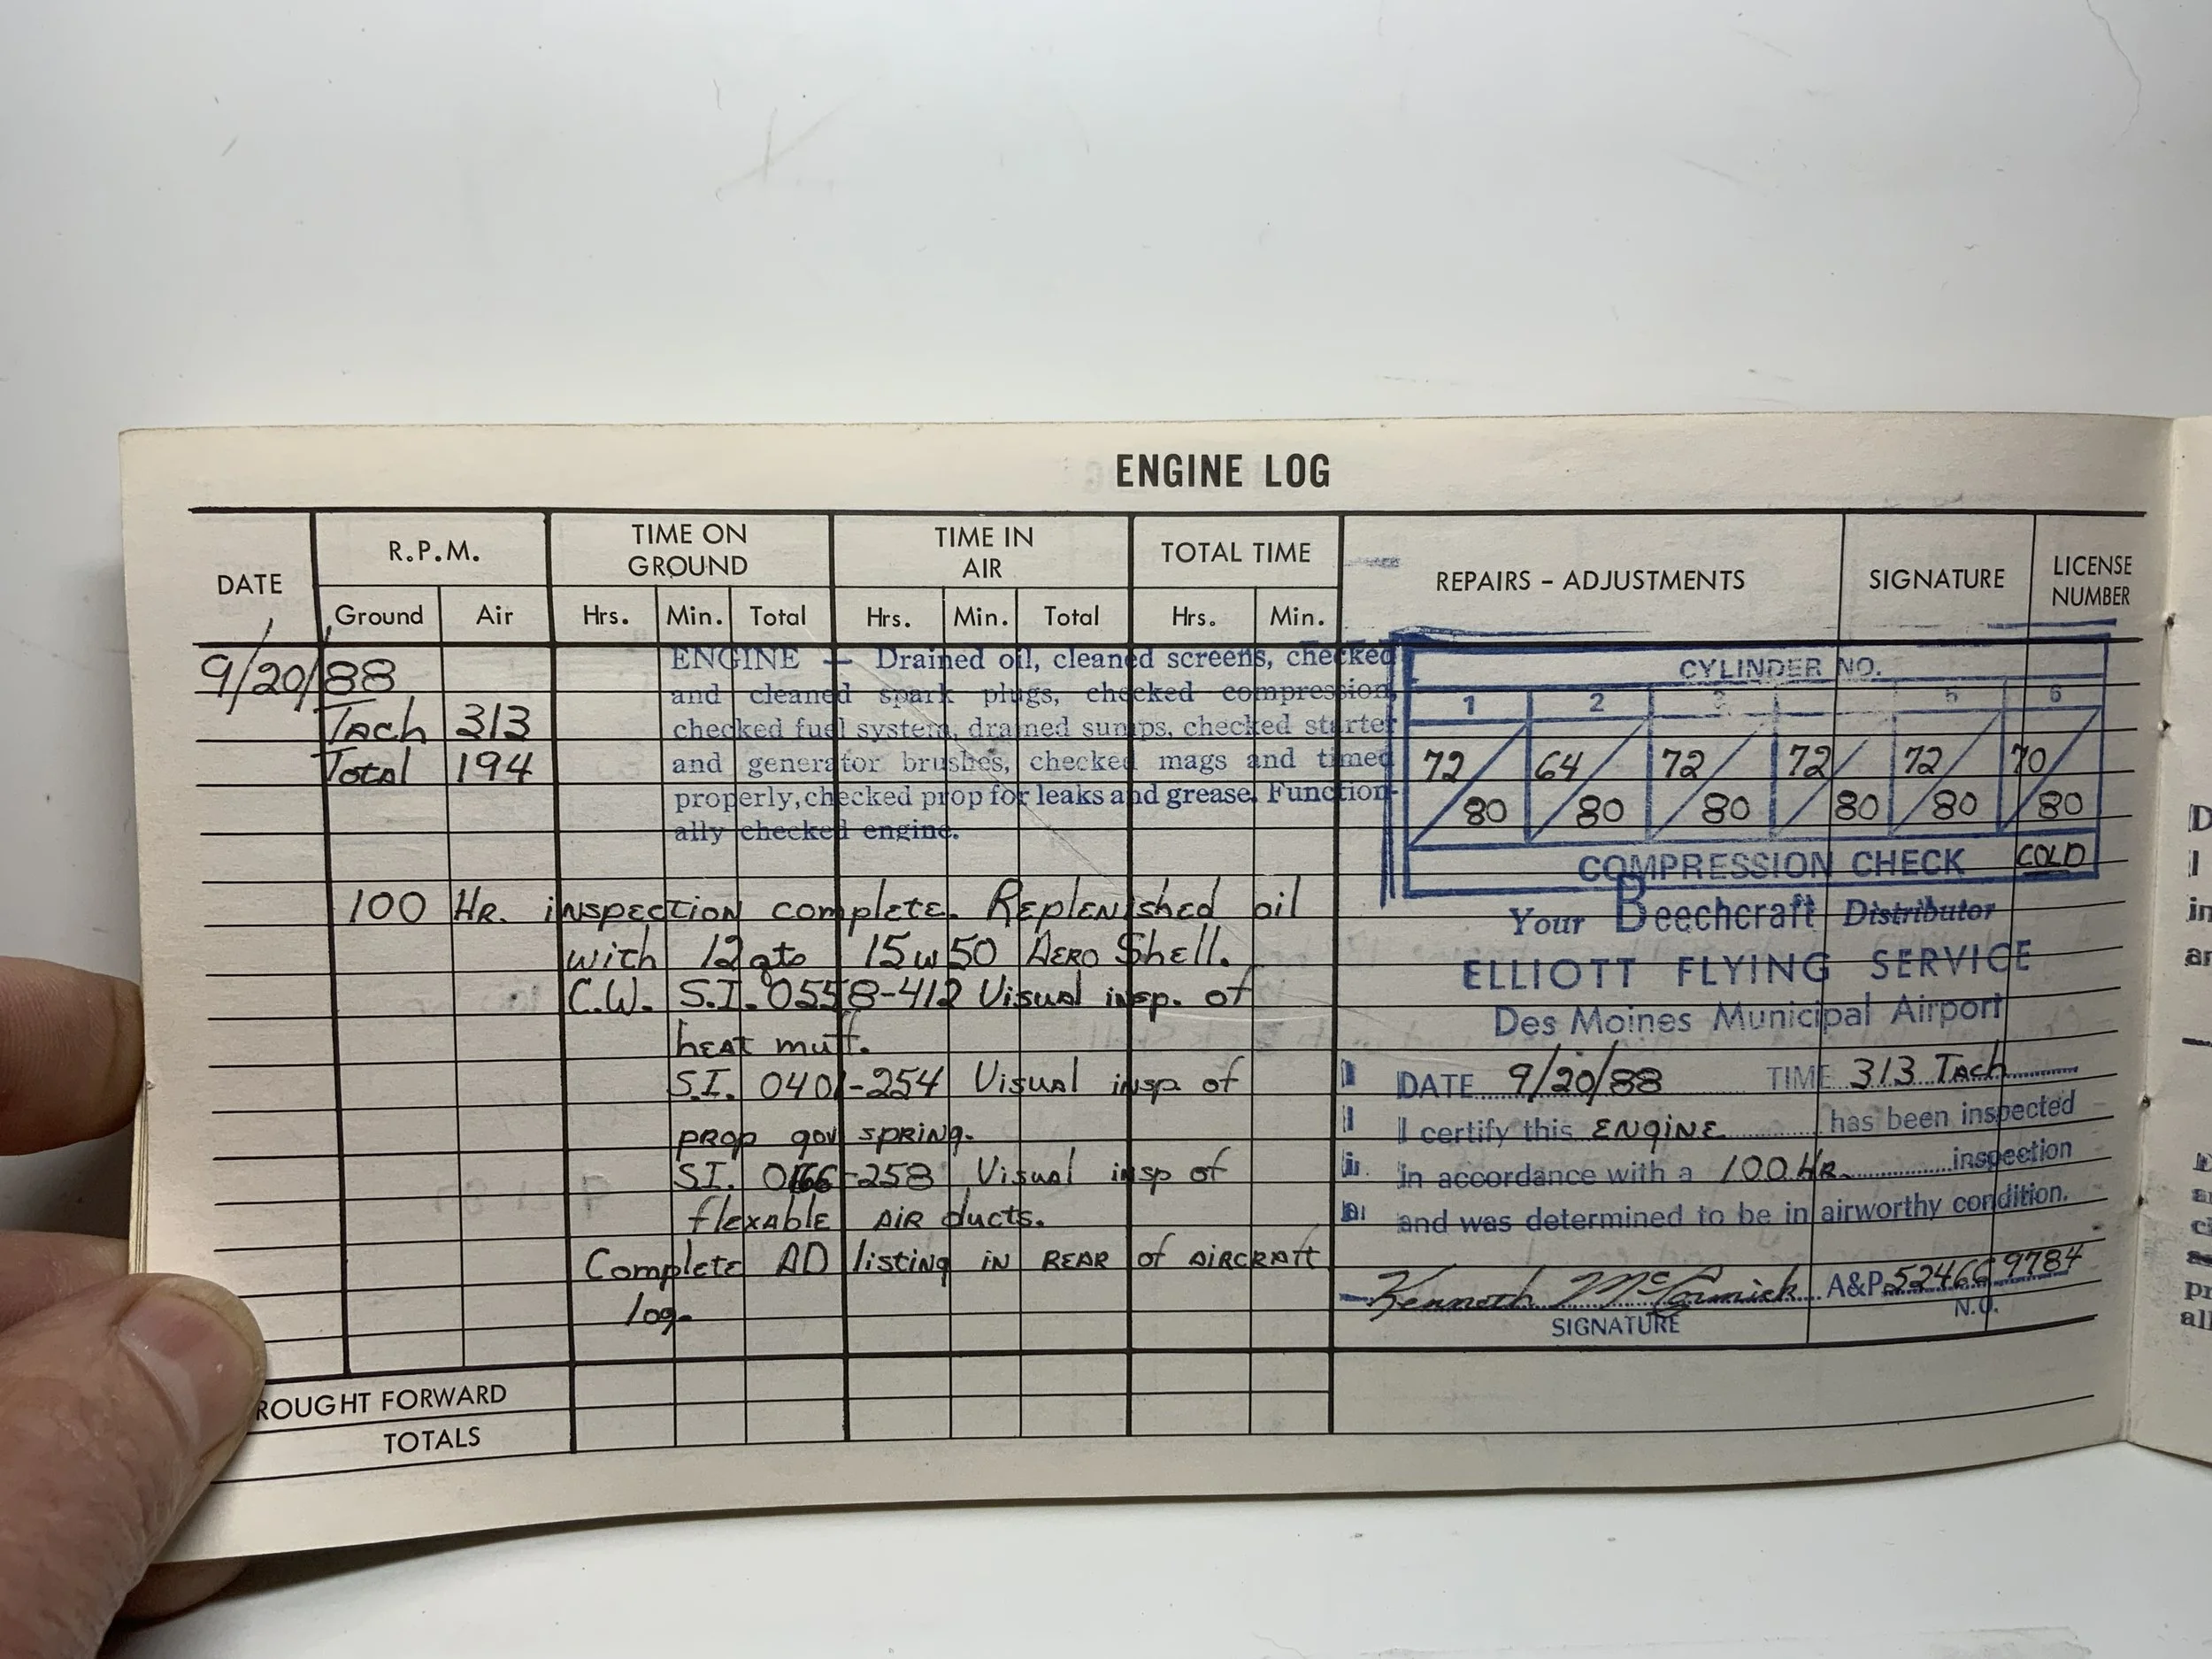 ENGINE LOG
DATE
R.P.M.
TIME ON GROUND
TIME IN AIR
TOTAL TIME
REPAIRS - ADJUSTMENTS
SIGNATURE
LICENSE NUMBER
Ground Air Hrs. Min. Total Hrs. Min. Total Hrs. Min.
9/20/88
Tach 313
Total 194
ENGINE — Drained oil, cleaned screens, checked
and cleaned spark plugs, checked compression,
checked fuel system, drained sumps, checked starter
and generator brushes, checked mags and timed
properly, checked prop for leaks and grease. Function-
ally checked engine.
100 HR. inspection complete. Replenished oil
with 12 qts 15w50 Aero Shell.
C.W. S.I. 0558-412 Visual insp. of
heat muff.
S.I. 0401-254 Visual insp. of
prop gov spring.
S.I. 0166-258 Visual insp of
flexable air ducts.
Complete AD listing in rear of aircraft
log.
ROUGHT FORWARD
TOTALS
CYLINDER NO.
1 2 3 5 6
72/80 64/80 72/80 72/80 72/80 70/80
COMPRESSION CHECK COLD
Your Beechcraft Distributor
ELLIOTT FLYING SERVICE
Des Moines Municipal Airport
DATE 9/20/88 TIME 313 Tach
I certify this ENGINE has been inspected
in accordance with a 100 HR. inspection
and was determined to be in airworthy condition.
Kenneth McCormick A&P 524669784
SIGNATURE N.O.